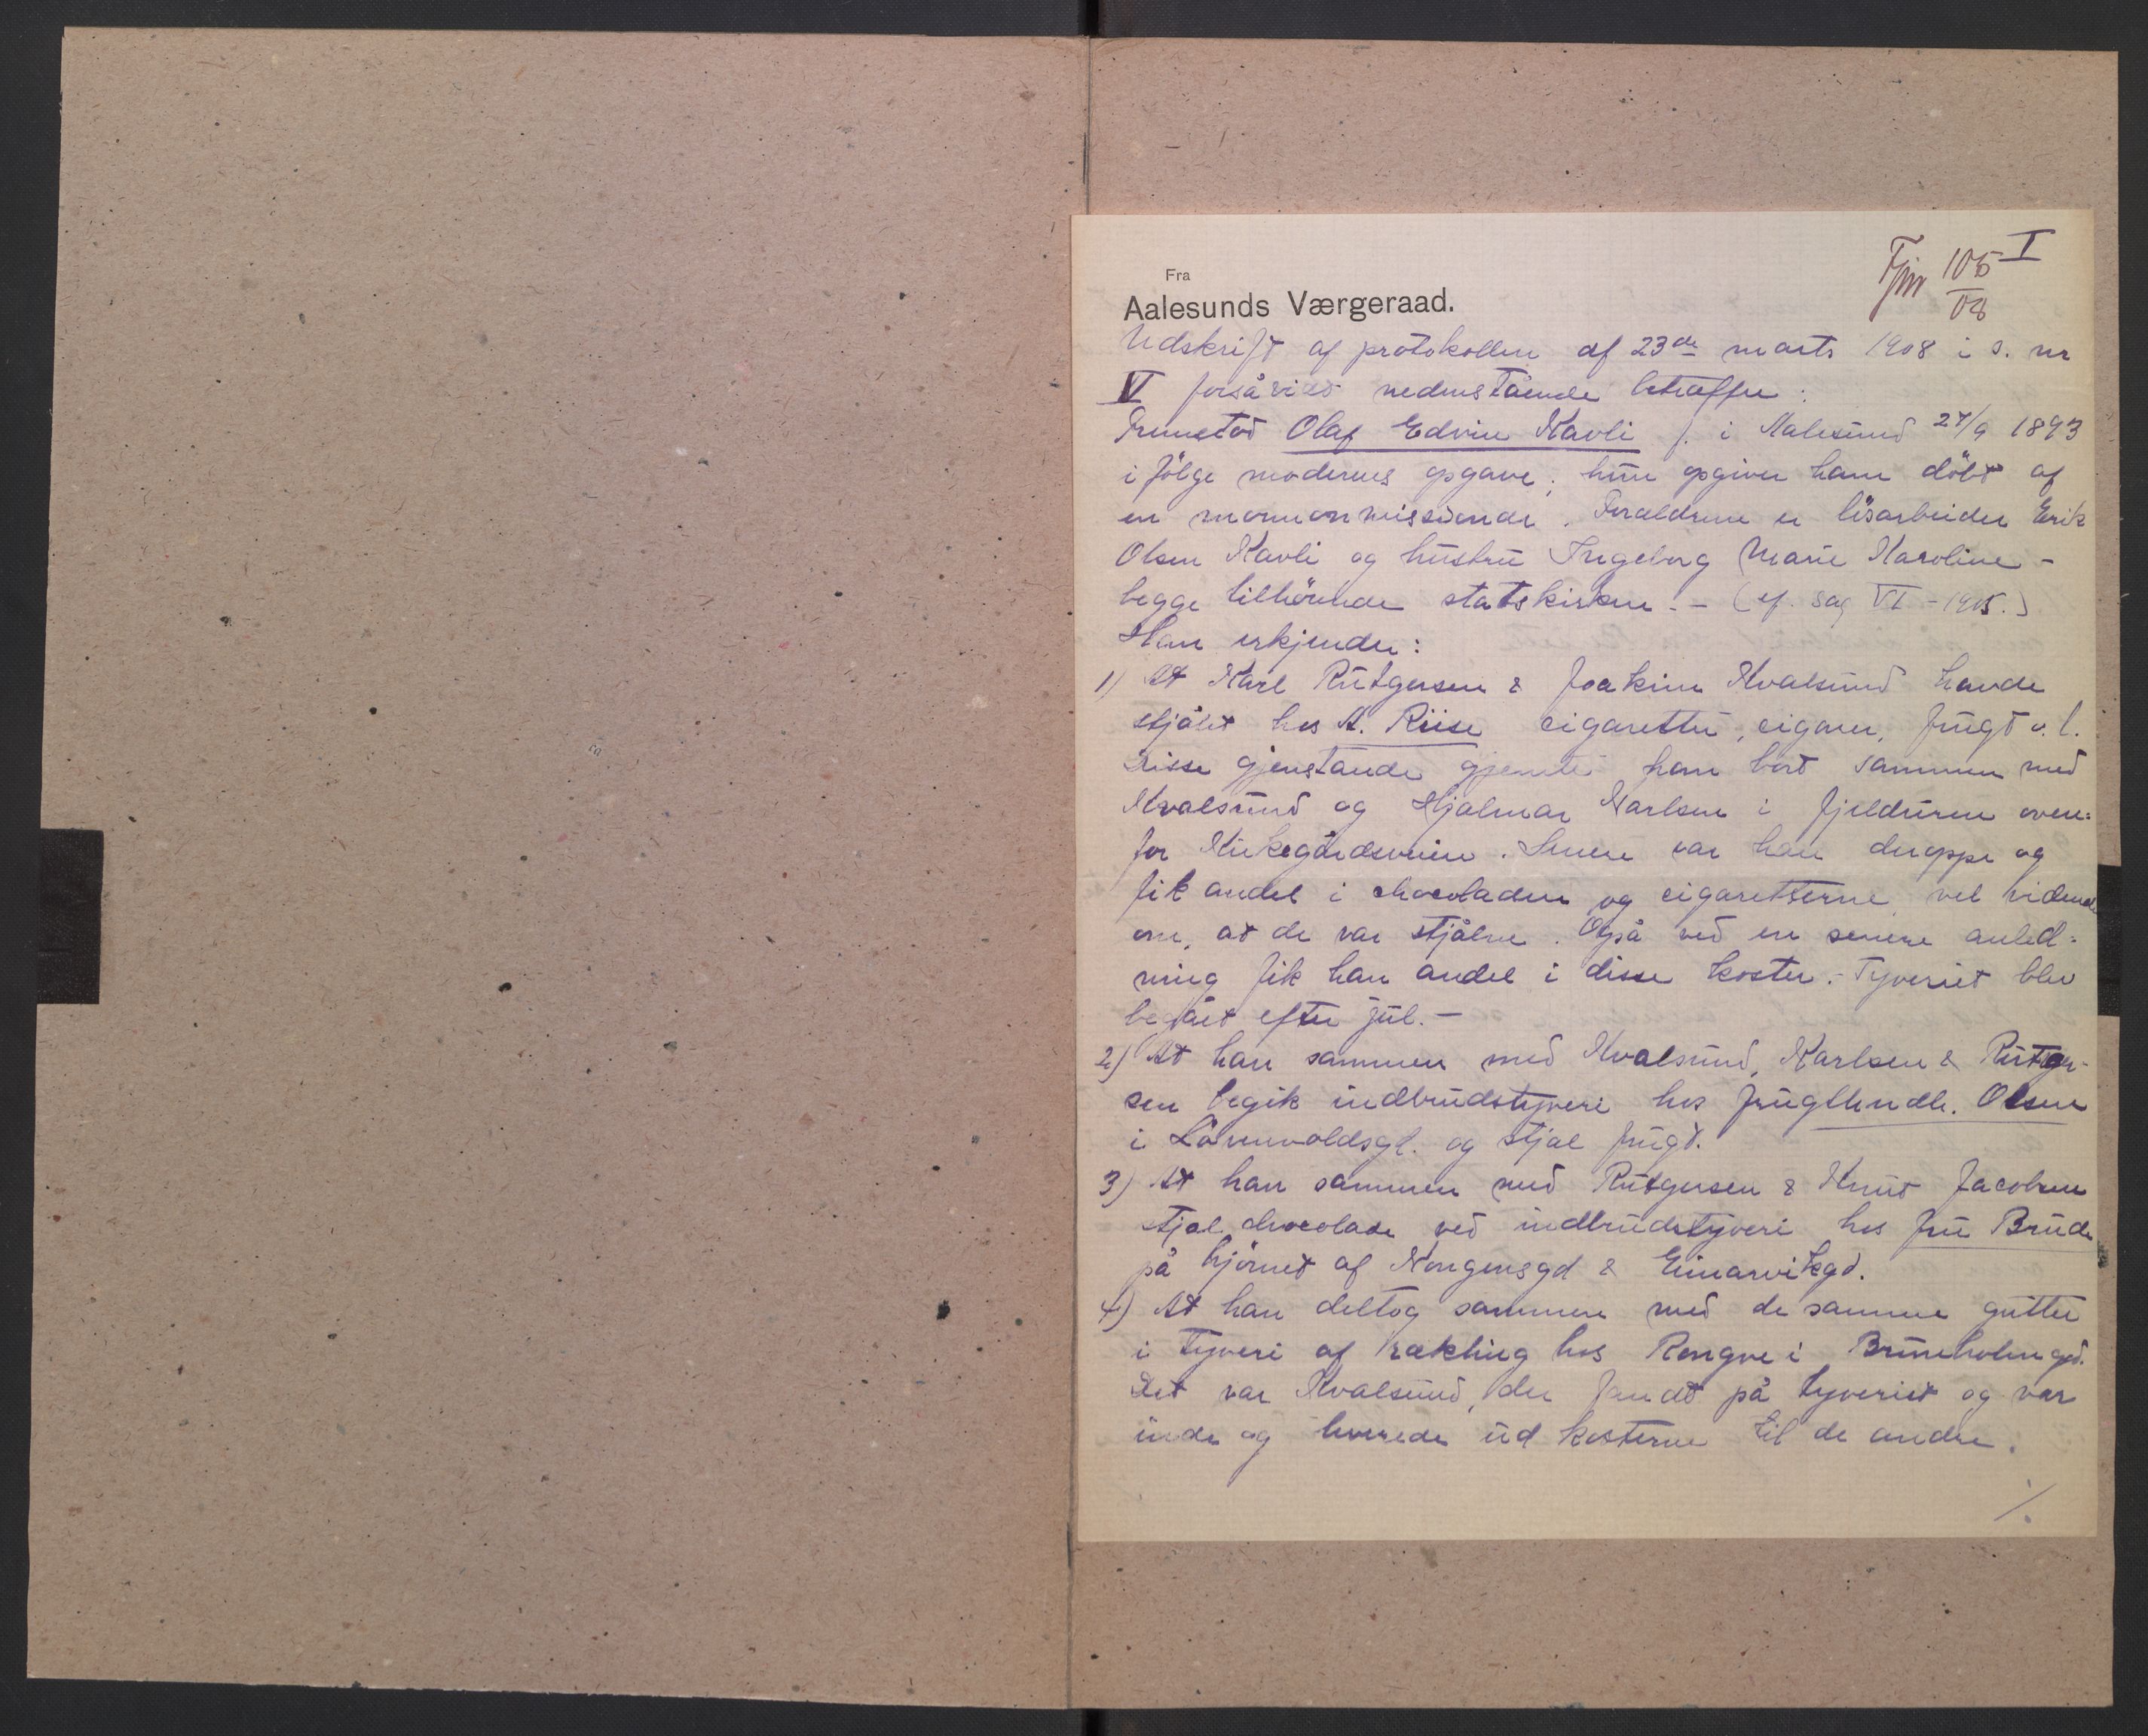 I
Fjnr 105
08
Fra
Aalesunds Værgeraad.
Udskrift af protokollen af 23de marts 1908 i s. nr
V forsåvidt nedenstående betræffer:
Fremstod Olaf Edvin Kavli f. i Aalesund 27/9 1893
i følge moderens opgave; hun opgiver ham døbt af
en mormonmissionær. Forældrene er løsarbeider Erik
Olsen Kavli og hustru Ingeborg Marie Karoline -
begge tilhørende statskirken. - (cf. sag VI - 1905.)
Han erkjender:
1) At Karl Rutgersen & Joakim Kvalsund havde
stjålet hos A. Riise cigaretter, cigarer, frugt o. l.
Disse gjenstande gjemte han bort sammen med
Kvalsund og Hjalmar Karlsen i fjeldurene oven=
for Kirkegårdsveien. Senere var han deroppe og
fik andel i chocoladen og cigaretterne, vel vidende
om, at de var stjålne. Også ved en senere anled=
ning fik han andel i disse koster. - Tyveriet blev
begået efter jul. -
2) At han sammen med Kvalsund, Karlsen & Rutger-
sen begik indbrudstyveri hos frugthndl. Olsen
i Løvenvoldsgd. og stjal frugt.
3) At han sammen med Rutgersen & Knut Jacobsen
stjal chocolade ved indbrudstyveri hos fru Brude
på hjørnet af Nongensgd & Einarvikgd.
4) At han deltog sammen med de samme gutter
i tyveri af rækling hos Rongve i Bruneholmgd.
Det var Kvalsund, der fandt på tyveriet og var
inde og leverede ud kosterne til de andre.
./.